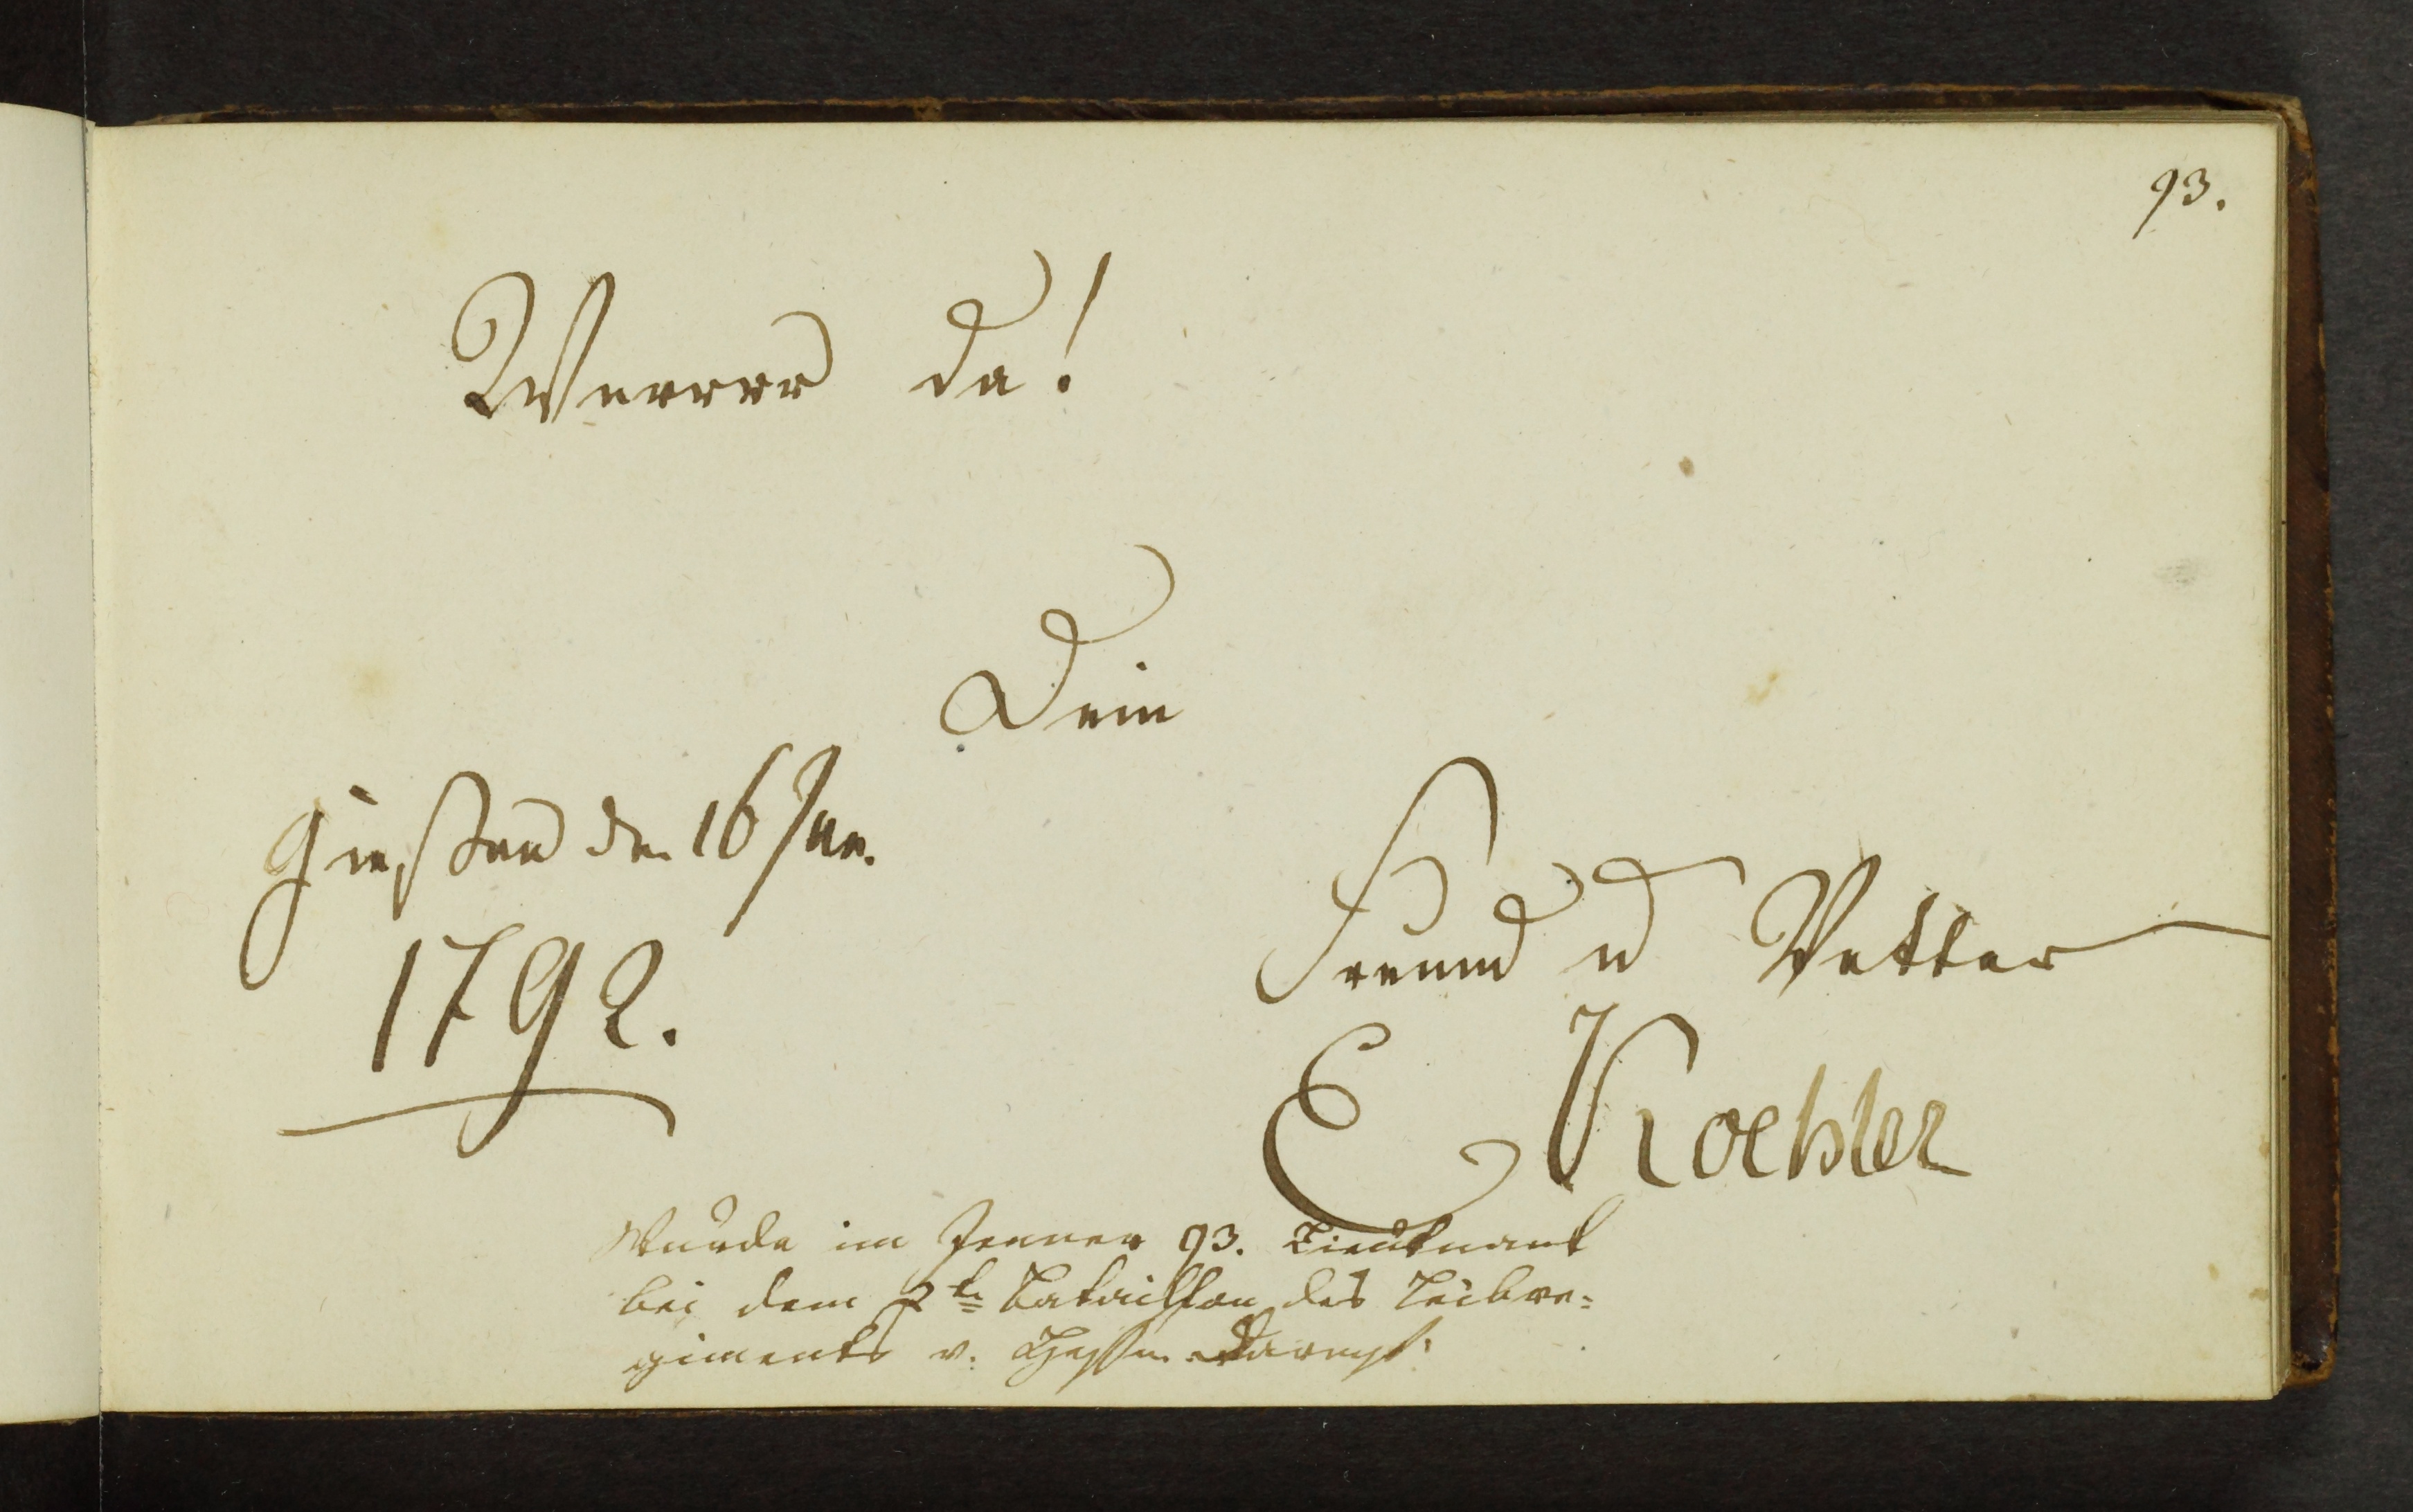 93.
Werrrr da!
Dein
Giessen den 16 Jan.
1792.
Freund u Vetter
E Koehler
Wurde im Jenner 93. Lieutnant
bei dem 2t. Bataillon des Leibre-
giments v. Hessen-Darmst.